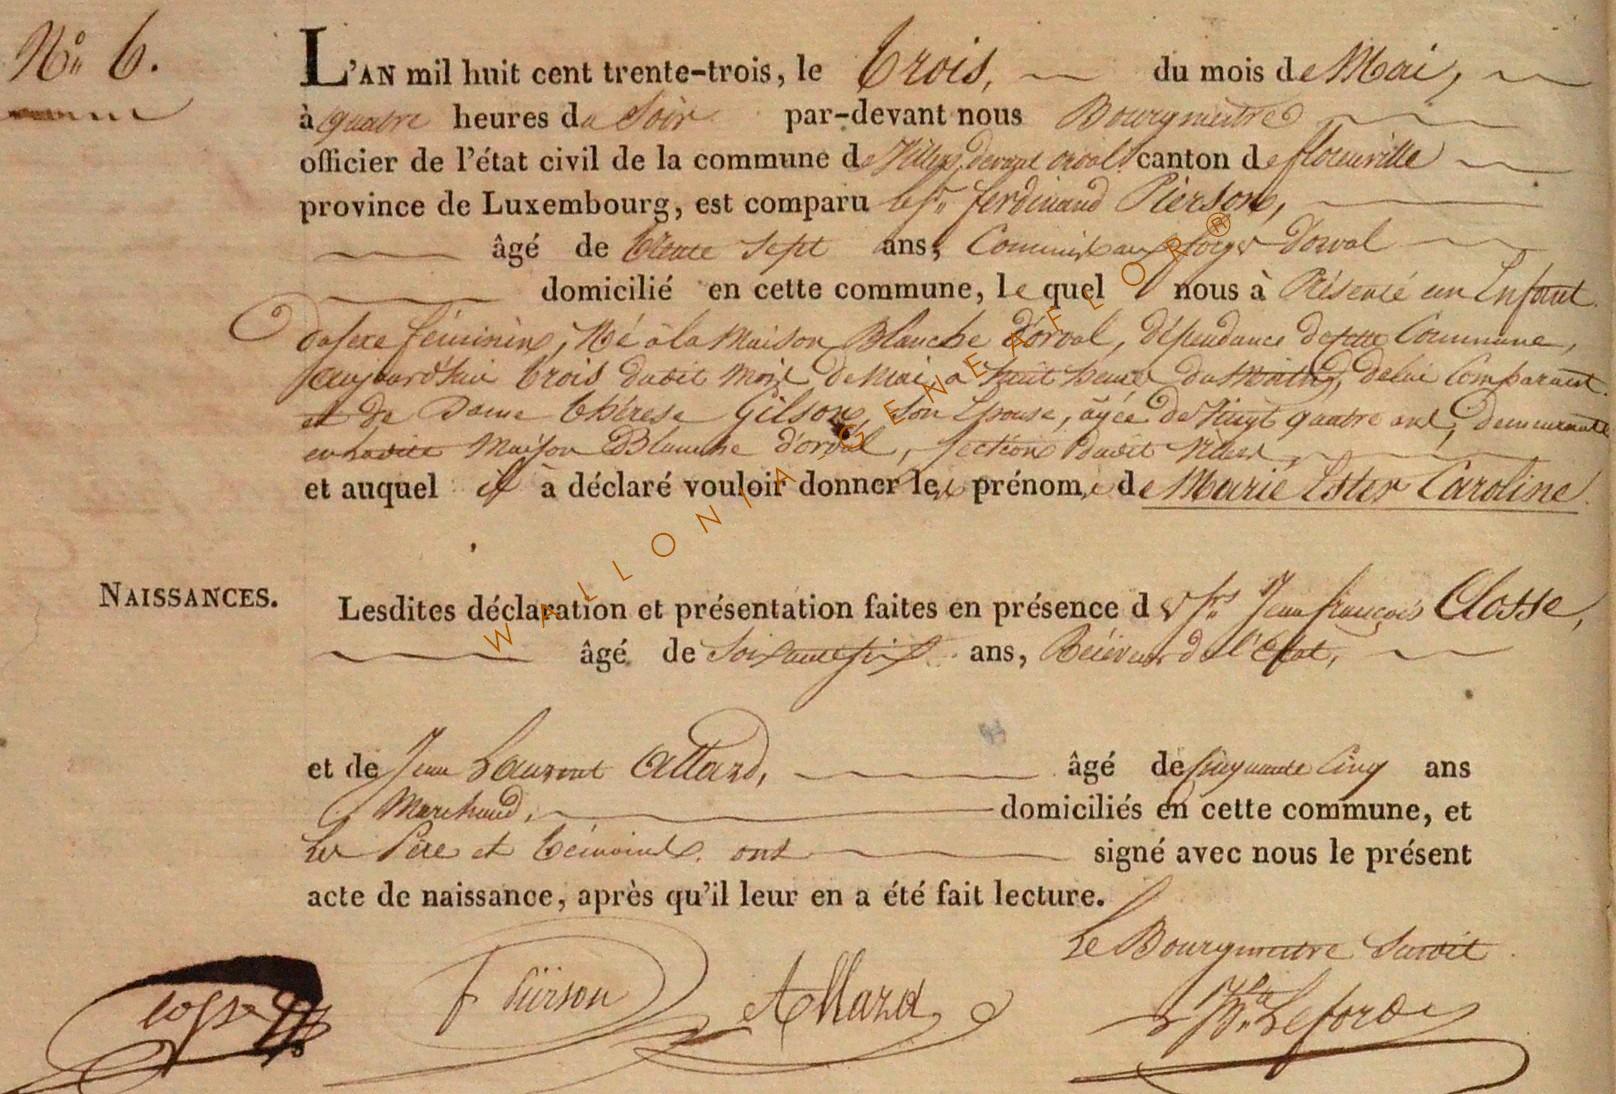 N.o 6.
L'AN mil huit cent trente-trois, le trois, du mois de Mai,
à quatre heures du Soir par-devant nous Bourgmestre
officier de l'état civil de la commune de Villers devant orval canton de florenville
province de Luxembourg, est comparu le Sr. ferdinand Pierson,
âgé de trente sept ans, Commis aux forges d'orval
domicilié en cette commune, le quel nous à Présenté un Enfant
du sexe féminin, Né à la Maison Blanche d'orval, dépendance de cette Commune,
aujourd'hui trois dudit mois de Mai, a huit heures du Matin, de lui Comparant
et de Dame thérese Gilson, son Epouse, âgée de Vingt quatre ans, demeurante
en ladite Maison Blanche d'orval, section dudit Villers,
et auquel il à déclaré vouloir donner les prénoms de Marie Ester Caroline
NAISSANCES.
Lesdites déclaration et présentation faites en présence d Srs Jean françois Closse,
âgé de Soixante six ans, Réceveur de l'Etat,
et de Jean Laurent Allard, âgé de Cinquante Cinq ans
Marchand, domiciliés en cette commune, et
Les Père et témoins ont signé avec nous le présent
acte de naissance, après qu'il leur en a été fait lecture.
Le Bourgmestre Susdit
closse F Pierson Allard Leforde
WALLONIA GENEAFLOR®